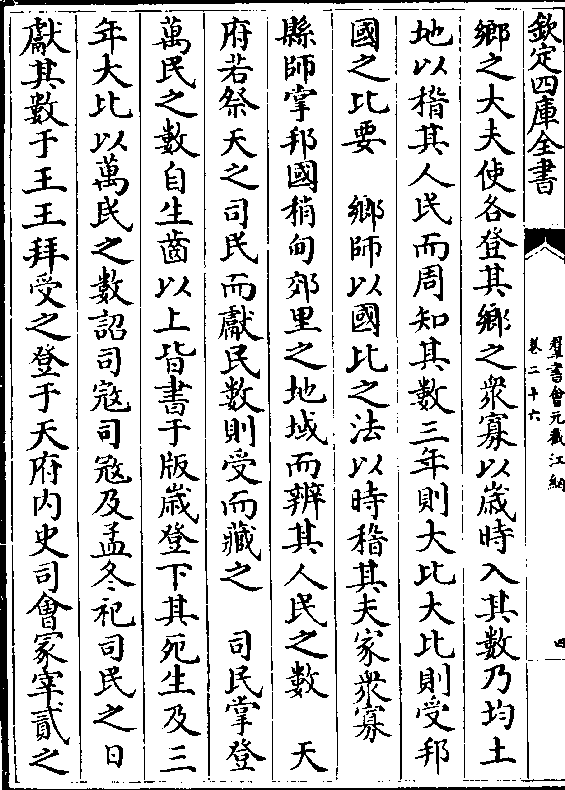 欽定四庫全書
羣書會元截江網
卷二十六
四
鄉之大夫使各登其鄉之衆寡以歲時入其數乃均土
地以稽其人民而周知其數三年則大比大比則受邦
國之比要　鄉師以國比之法以時稽其夫家衆寡
縣師掌邦國稍甸郊里之地域而辨其人民之數　天
府若祭天之司民而獻民數則受而藏之　司民掌登
萬民之數自生齒以上皆書于版歲登下其死生及三
年大比以萬民之數詔司寇司寇及孟冬祀司民之日
獻其數于王王拜受之登于天府内史司會冢宰貳之